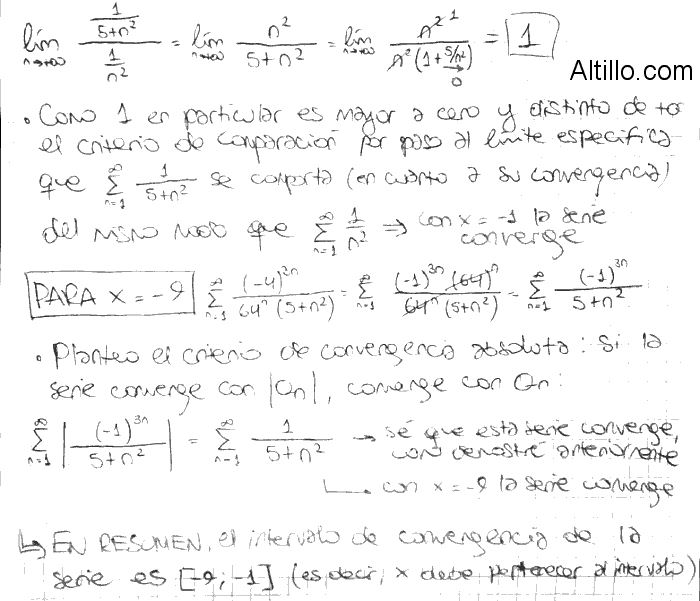 lím n→+∞ (1/(5+n²))/(1/n²) = lím n→+∞ n²/(5+n²) = lím n→+∞ n² 1/(n²(1+5/n²)) = 1
0
Altillo.com
• Como 1 en particular es mayor a cero y distinto de +∞
el criterio de comparación por paso al límite especifica
que ∑ n=1 ∞ 1/(5+n²) se comporta (en cuanto a su convergencia)
del mismo modo que ∑ n=1 ∞ 1/n² ⇒ con x = -1 la serie
converge
PARA X = -9 ∑ n=1 ∞ (-4)³ⁿ/(64ⁿ(5+n²)) = ∑ n=1 ∞ (-1)³ⁿ (64)ⁿ/(64ⁿ(5+n²)) = ∑ n=1 ∞ (-1)³ⁿ/(5+n²)
• Planteo el criterio de convergencia absoluta: Si la
serie converge con |an|, converge con an:
∑ n=1 ∞ |(-1)³ⁿ/(5+n²)| = ∑ n=1 ∞ 1/(5+n²) → sé que esta serie converge,
como demostré anteriormente
↳ con x = -9 la serie converge
↳ EN RESUMEN, el intervalo de convergencia de la
serie es [-9; -1] (es decir, x debe pertenecer al intervalo)